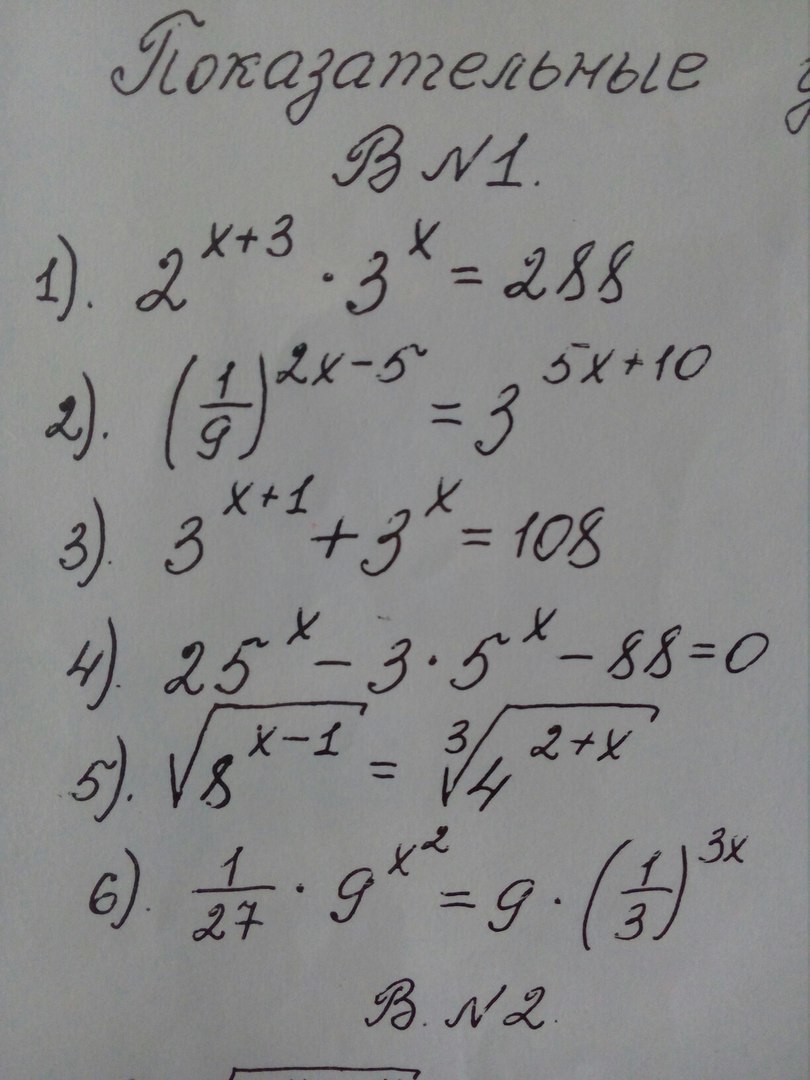 Показательные
В №1.
1). 2^{x+3} · 3^x = 288
2). (1/9)^{2x-5} = 3^{5x+10}
3). 3^{x+1} + 3^x = 108
4). 25^x - 3 · 5^x - 88 = 0
5). √(8^{x-1}) = ∛(4^{2+x})
6). 1/27 · 9^{x^2} = 9 · (1/3)^{3x}
В. №2.